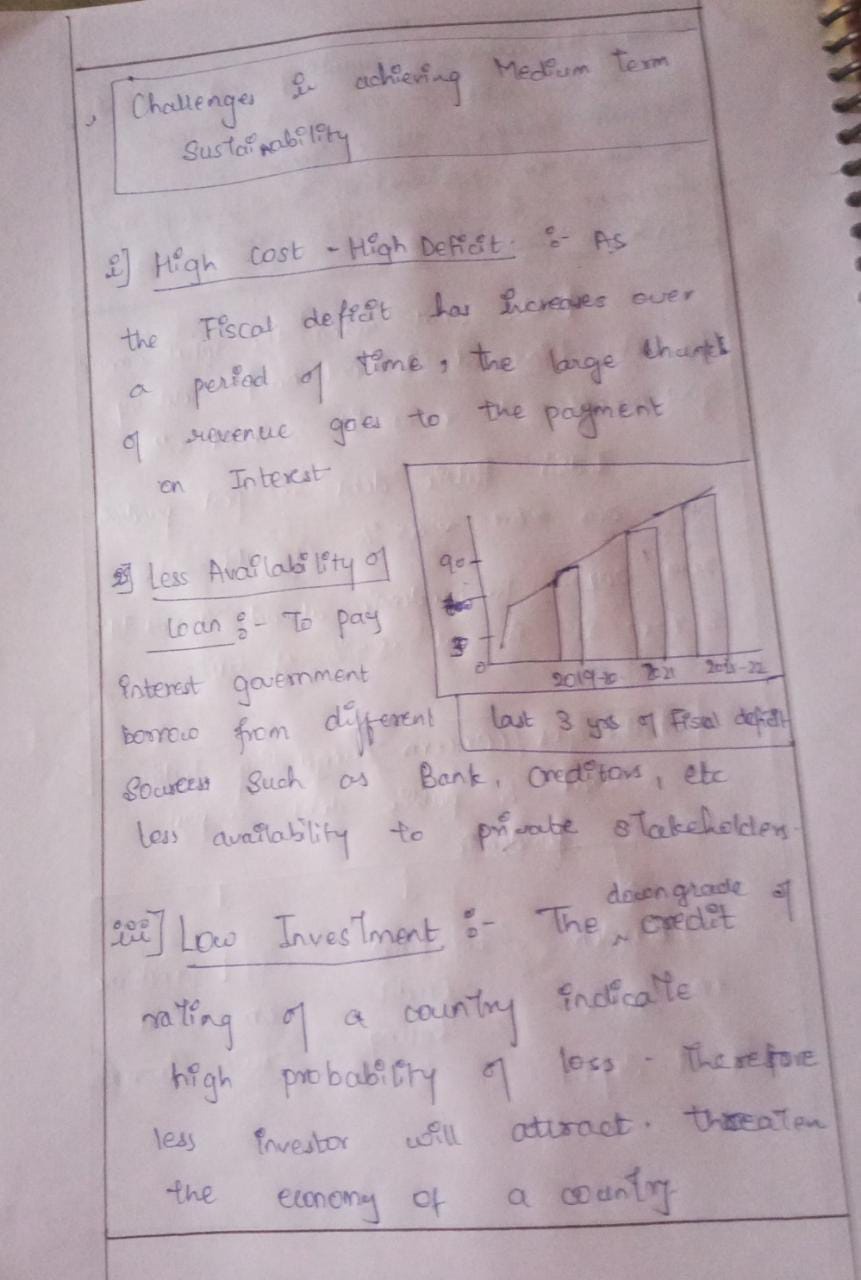 Challenges in achieving Medium Term
Sustainability
i] High cost - High Deficit :- As
the Fiscal deficit has increases over
a period of time, the large
of revenue goes to the payment
on Interest
ii] Less Availability of
loan :- To pay
interest government
borrow from different
Sources such as Bank, creditors, etc
less availability to private stakeholders.
90
5
0
2019-20 2021 2021-22
last 3 yrs of Fiscal deficit
iii] Low Investment :- The downgrade of credit
rating of a country indicate
high probability of loss. Therefore
less investor will attract. threaten
the economy of a country